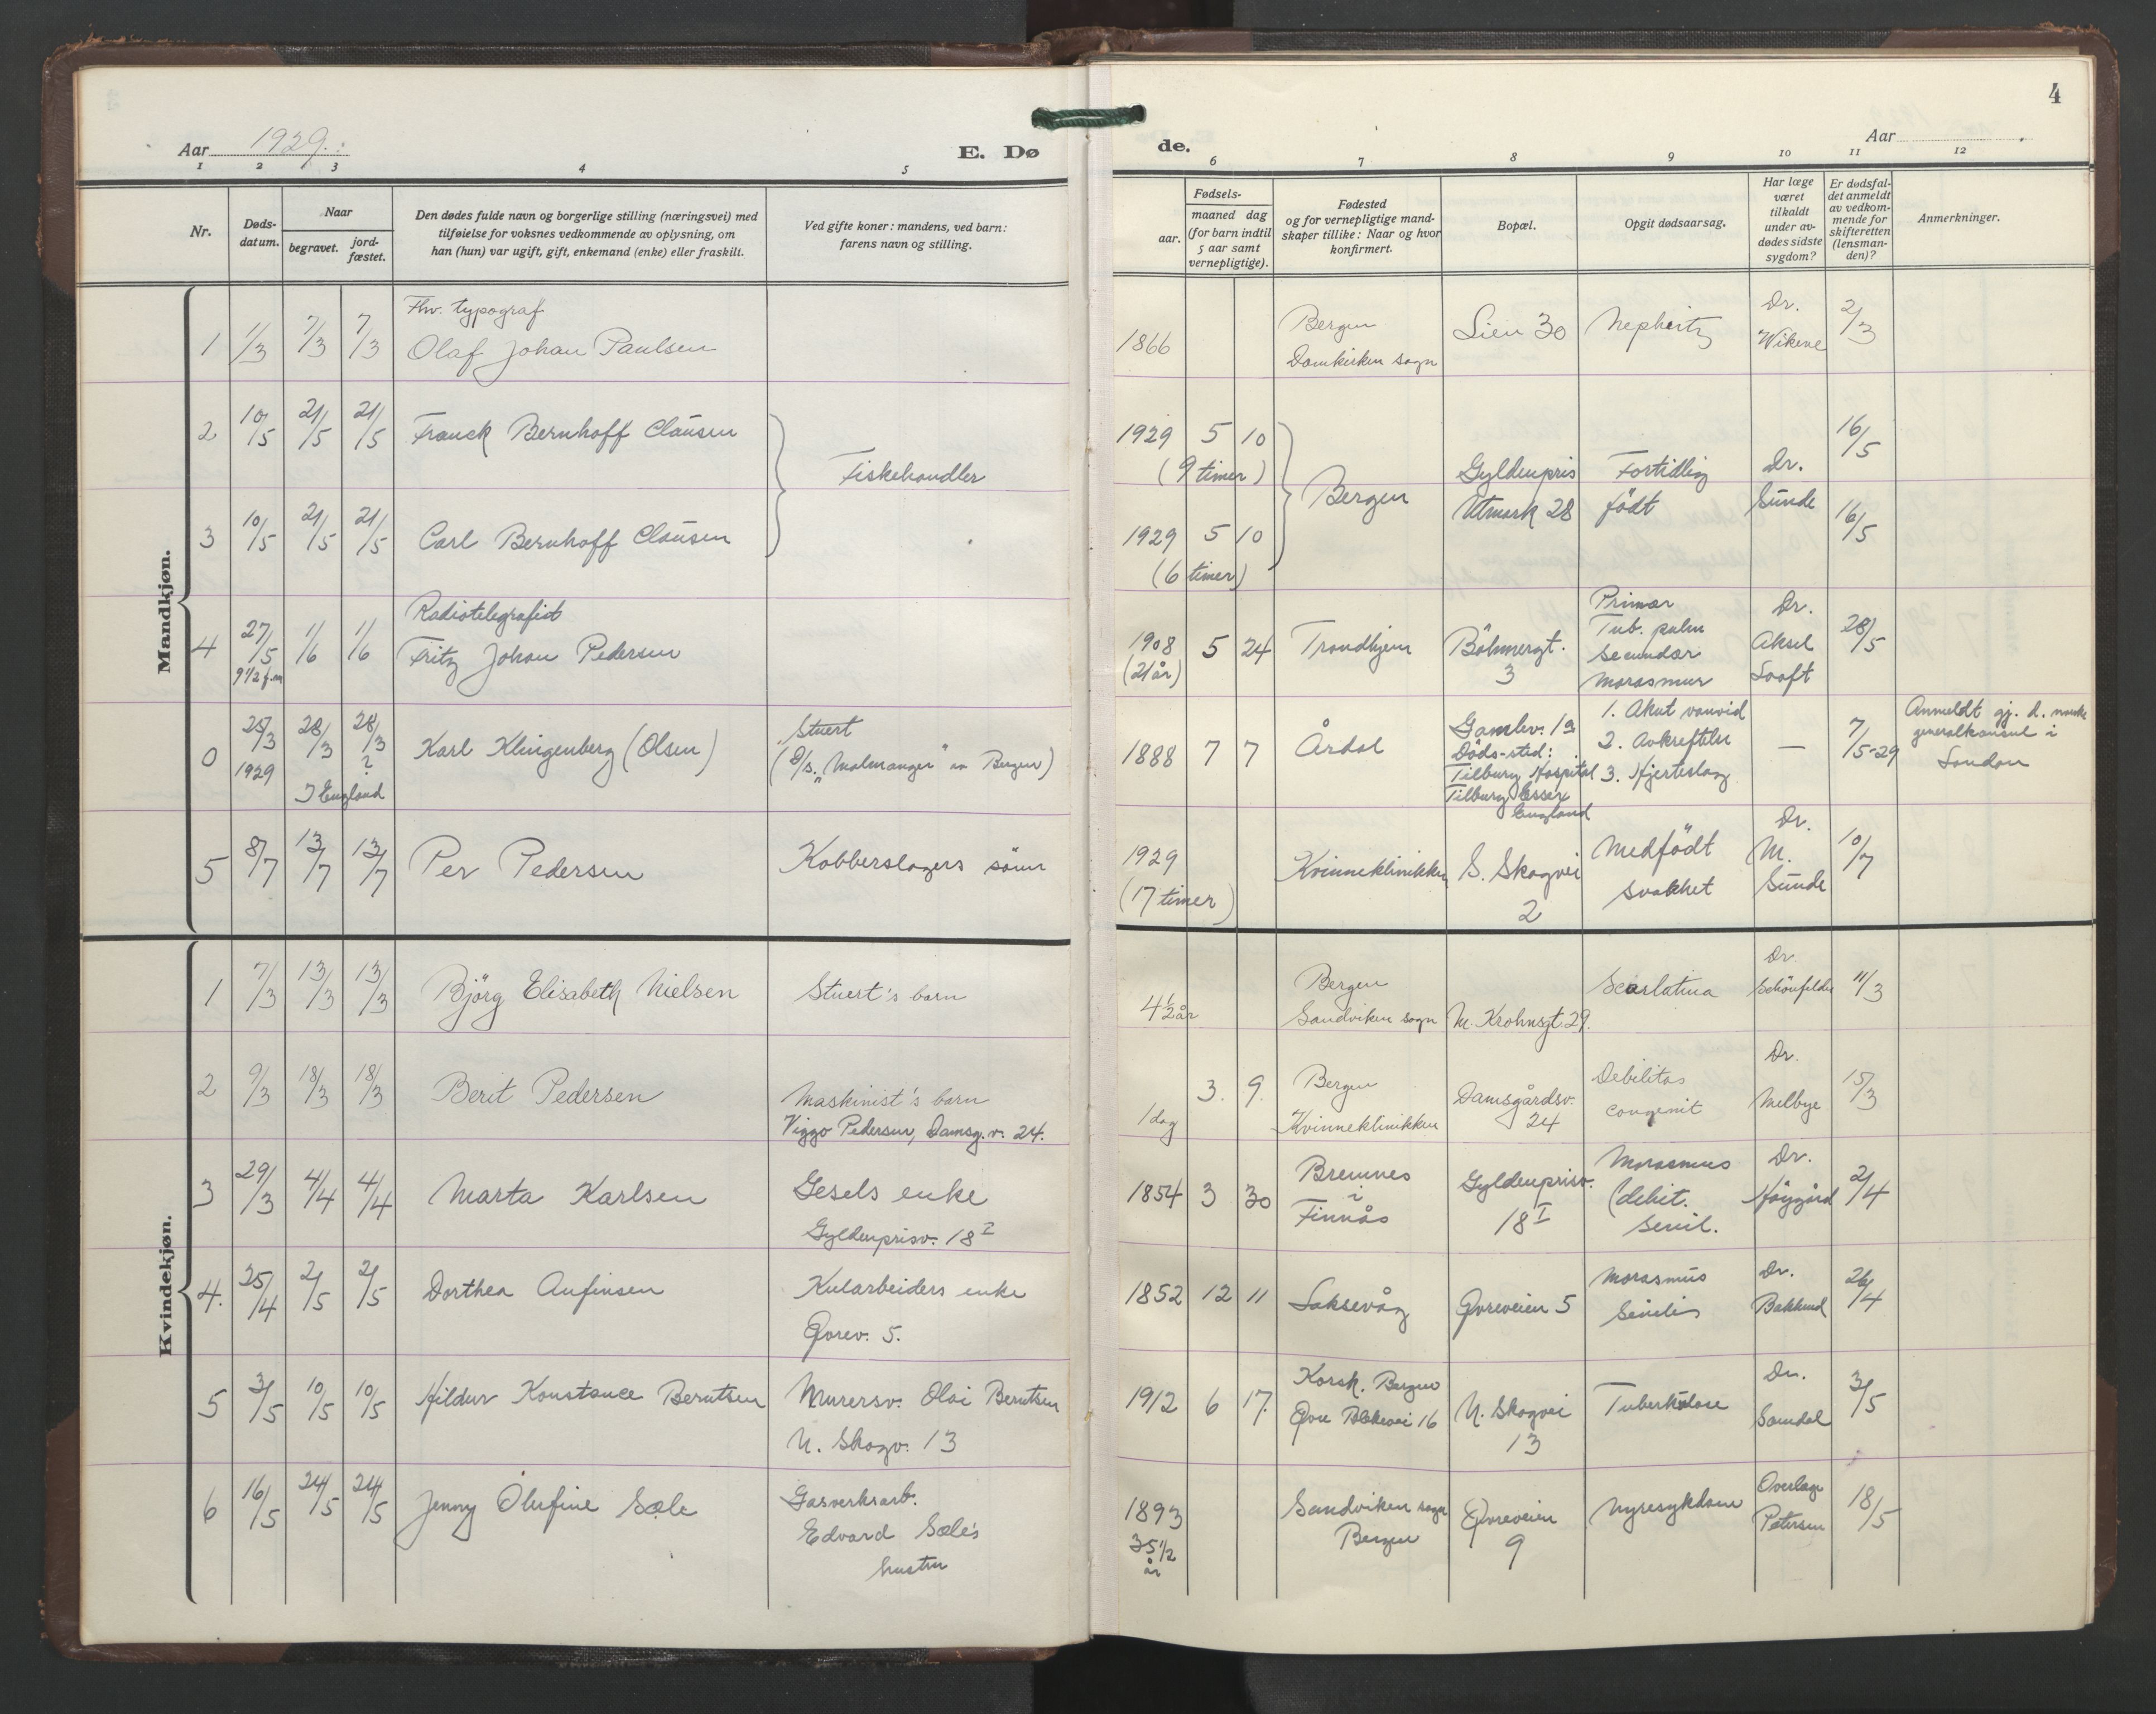 4
Aar 1929.
E. Dø
de.
Aar
1 2 3 4 5 6 7 8 9 10 11 12
Nr.
Døds-
datum.
Naar
begravet.
jord-
fæstet.
Den dødes fulde navn og borgerlige stilling (næringsvei) med
tilføielse for voksnes vedkommende av oplysning, om
han (hun) var ugift, gift, enkemand (enke) eller fraskilt.
Ved gifte koner: mandens, ved barn:
farens navn og stilling.
aar.
Fødsels-
maaned dag
(for barn indtil
5 aar samt
vernepligtige).
Fødested
og for vernepligtige mand-
skaper tillike: Naar og hvor
konfirmert.
Bopæl.
Opgit dødsaarsag.
Har læge
været
tilkaldt
under av-
dødes sidste
sygdom?
Er dødsfal-
det anmeldt
av vedkom-
mende for
skifteretten
(lensman-
den)?
Anmerkninger.
Mandkjøn.
1 1/3 7/3 7/3
Fhv. typograf
Olaf Johan Paulsen
1866
Bergen
Domkirken sogn
Lien 30
Dr.
2/3
2 10/5 21/5 21/5 Franck Bernhoff Claüsen
Fiskehandler
1929 5 10
(9 timer)
Bergen
Gyldenpris
Utmark 28
Fortidlig
født
Dr.
Sünde
16/5
3 10/5 21/5 21/5 Carl Bernhoff Claüsen
1929 5 10
(6 timer)
16/5
4 27/5 1/6 1/6
9 1/2 f.m
Radiotelegrafist
Fritz Johan Pedersen
1908 5 24
(21 år)
Trondhjem
Böhmergt.
3
Primær
Tub. pulm
Secundær
Marasmus
Dr.
Aksel
Looft
28/5
0 25/3 28/3 28/3
1929 ?
I England
Karl Klingenberg (Olsen)
Stuert
(D/S. "Malmanger" av Bergen)
1888 7 7
Årdal
Gamlev. 1a
Döds-sted:
Tilbury Hospital
Tilbury Essex
England
1. Akut vanvid
2. Avkreftelse
3. Hjerteslag
—
7/5-29
Anmeldt gj. d. norske
generalkonsul i
London
5 8/7 13/7 13/7 Per Pedersen
Kobberslagers sönn
1929
(17 timer)
Kvinneklinikken
S. Skogvei
2
Medfödt
svakhet
Dr.
M.
Sünde
10/7
Kvindekjøn.
1 7/3 13/3 13/3 Björg Elisabeth Nielsen
Stuert's barn
4 1/2 år
Bergen
Sandviken sogn
M. Krohnsgt. 29.
Scarlatina
Dr.
11/3
2 9/3 18/3 18/3 Berit Pedersen
Maskinist's barn
Viggo Pedersen, Damsg.v. 24.
3. 9.
1 dag
Bergen
Kvinneklinikken
Damsgårdsv.
24
Debilitas
congenit
Dr.
Melbye
15/3
3 29/3 4/4 4/4 Marta Karlsen
Gesels enke
Gyldenprisv. 18 I
1854 3 30
Bremnes
i
Finnås
Gyldenprisv.
18 I
Marasmus
(debit.
senil.
Dr.
Höygård
2/4
4. 25/4 2/5 2/5 Dorthea Anfinsen
Kularbeiders enke
Øvrev. 5.
1852 12 11
Laksevåg
Øvreveien 5
Marasmüs
Senilis
Dr.
Bakkend
26/4
5 3/5 10/5 10/5 Hildur Konstance Berntsen
Murersv. Olai Berntsen
N. Skogv. 13
1912 6 17.
Korsk. Bergen
Øvre Blekevei 16
N. Skogvei
13
Tuberkulose
Dr.
Samdal
3/5
6 16/5 24/5 24/5 Jenny Olufine Sæle
Gasverksarb.
Edvard Sæle's
hustru
1893
35 1/2
år
Sandviken sogn
Bergen
Øvreveien
9
Nyresykdom
Overlæge
Petersen
18/5